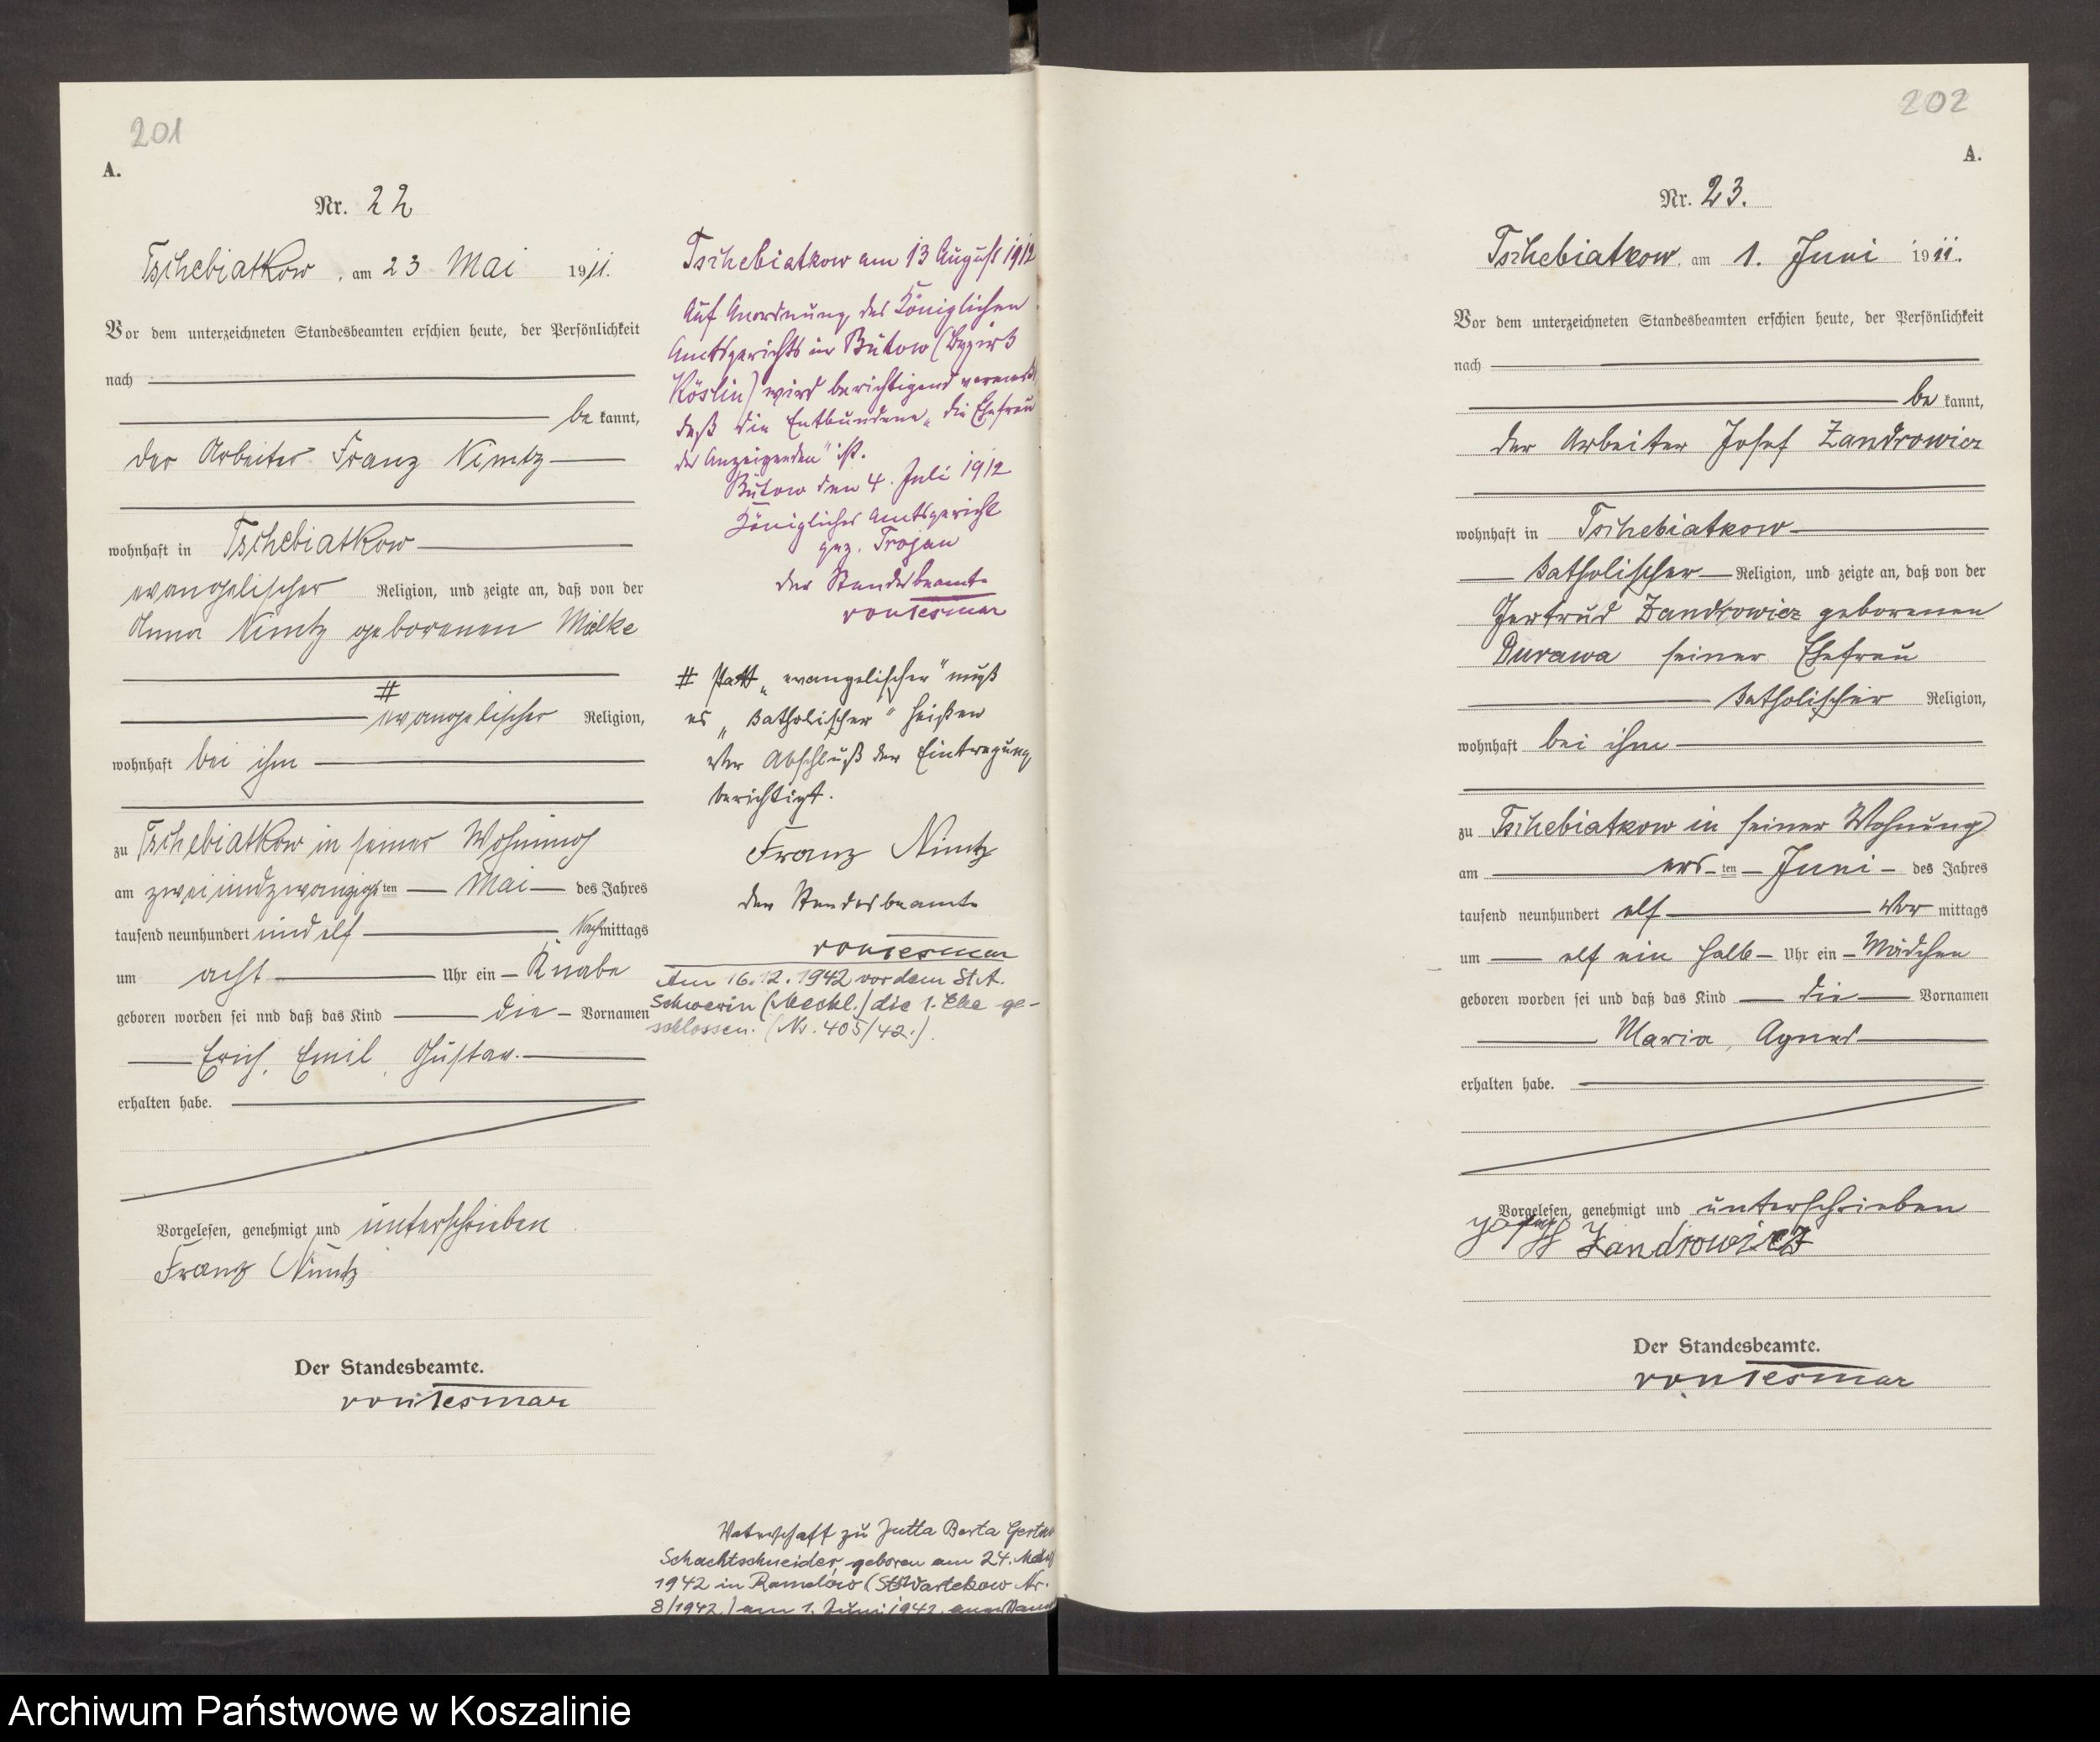 201
A.
Nr. 22
Tschebiatkow, am 23 Mai 1911.
Vor dem unterzeichneten Standesbeamten erschien heute, der Persönlichkeit
nach
be kannt,
der Arbeiter Franz Nimtz
wohnhaft in Tschebiatkow
evangelischer Religion, und zeigte an, daß von der
Anna Nimtz geborenen Mielke
#
evangelischer Religion,
wohnhaft bei ihm
zu Tschebiatkow in seiner Wohnung
am zweiundzwanzigsten Mai des Jahres
tausend neunhundert und elf Nachmittags
um acht Uhr ein Knabe
geboren worden sei und daß das Kind die Vornamen
Erich, Emil, Gustav.
erhalten habe.
Vorgelesen, genehmigt und unterschrieben
Franz Nimtz
Der Standesbeamte.
von Tesmar
Tschebiatkow am 13 August 1912
Auf Anordnung des Königlichen
Amtsgerichts in Bütow (Bezirk
Köslin) wird berichtigend vermerkt,
daß die Entbundene „die Ehefrau
des Anzeigenden" ist.
Bütow den 4. Juli 1912
Königliches Amtsgericht
gez. Trojan
der Standesbeamte
von Tesmar
# statt „evangelischer" muß
es „katholischer" heißen
vor Abschluß der Eintragung
berichtigt.
Franz Nimtz
der Standesbeamte
von Tesmar
Am 16.12.1942 vor dem St.A.
Schwerin (Meckl.) die 1. Ehe ge-
schlossen. (Nr. 405/42.)
Vaterschaft zu Jutta Berta
Schachtschneider, geboren am 24. März
1942 in Ramelow (St. Wartekow Nr.
8/1942) am 1. Juni 1942 anerkannt
202
A.
Nr. 23.
Tschebiatkow, am 1. Juni 1911.
Vor dem unterzeichneten Standesbeamten erschien heute, der Persönlichkeit
nach
be kannt,
der Arbeiter Josef Zandrowicz
wohnhaft in Tschebiatkow
katholischer Religion, und zeigte an, daß von der
Gertrud Zandrowicz geborenen
Durawa seiner Ehefrau
katholischer Religion,
wohnhaft bei ihm
zu Tschebiatkow in seiner Wohnung
am ersten Juni des Jahres
tausend neunhundert elf Vor mittags
um elf ein halb Uhr ein Mädchen
geboren worden sei und daß das Kind die Vornamen
Maria, Agnes
erhalten habe.
Vorgelesen, genehmigt und unterschrieben
Zandrowicz
Der Standesbeamte.
von Tesmar
Archiwum Państwowe w Koszalinie